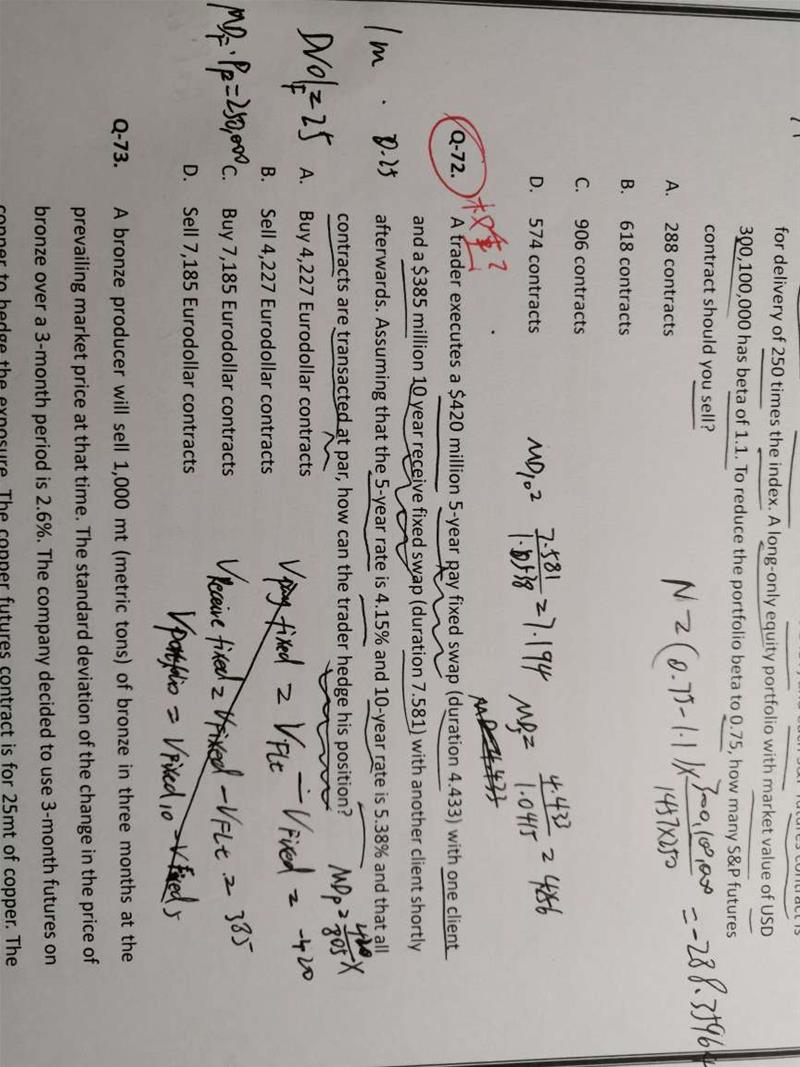 for delivery of 250 times the index. A long-only equity portfolio with market value of USD
300,100,000 has beta of 1.1. To reduce the portfolio beta to 0.75, how many S&P futures
contract should you sell?
A. 288 contracts
B. 618 contracts
C. 906 contracts
D. 574 contracts
N = (0.75-1.1) × 300,100,000 / 1457×250 = -288.35964
MD10 = 7.581 / 1.0538 = 7.194 MD5 = 4.433 / 1.0415 = 4.256
Q-72. A trader executes a $420 million 5-year pay fixed swap (duration 4.433) with one client
and a $385 million 10 year receive fixed swap (duration 7.581) with another client shortly
afterwards. Assuming that the 5-year rate is 4.15% and 10-year rate is 5.38% and that all
contracts are transacted at par, how can the trader hedge his position?
A. Buy 4,227 Eurodollar contracts
B. Sell 4,227 Eurodollar contracts
C. Buy 7,185 Eurodollar contracts
D. Sell 7,185 Eurodollar contracts
1m · 0.25
DV01F = 25
MDF · PF = 250,000
MDP = 420 / 805 ×
Vpay fixed = VFLt - Vfixed = -420
Vreceive fixed = Vfixed - VFLt = 385
Vportfolio = Vfixed10 - Vfixed5
Q-73. A bronze producer will sell 1,000 mt (metric tons) of bronze in three months at the
prevailing market price at that time. The standard deviation of the change in the price of
bronze over a 3-month period is 2.6%. The company decided to use 3-month futures on
copper to hedge the exposure. The copper futures contract is for 25mt of copper. The